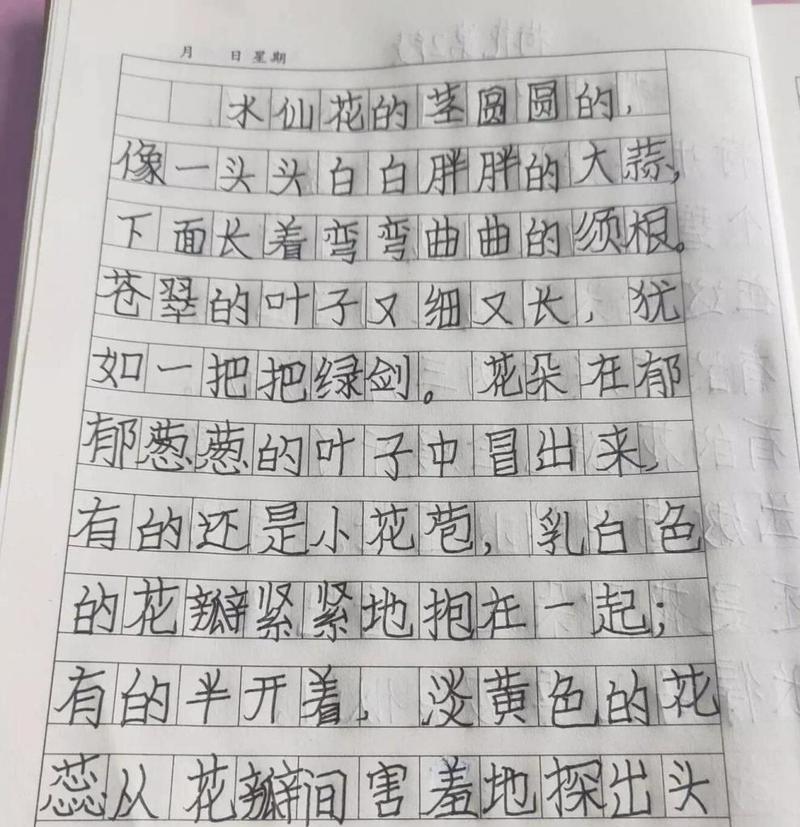 月 日 星期
水仙花的茎圆圆的，
像一头头白白胖胖的大蒜，
下面长着弯弯曲曲的须根。
苍翠的叶子又细又长，犹
如一把把绿剑。花朵在郁
郁葱葱的叶子中冒出来，
有的还是小花苞，乳白色
的花瓣紧紧地抱在一起；
有的半开着，淡黄色的花
蕊从花瓣间害羞地探出头